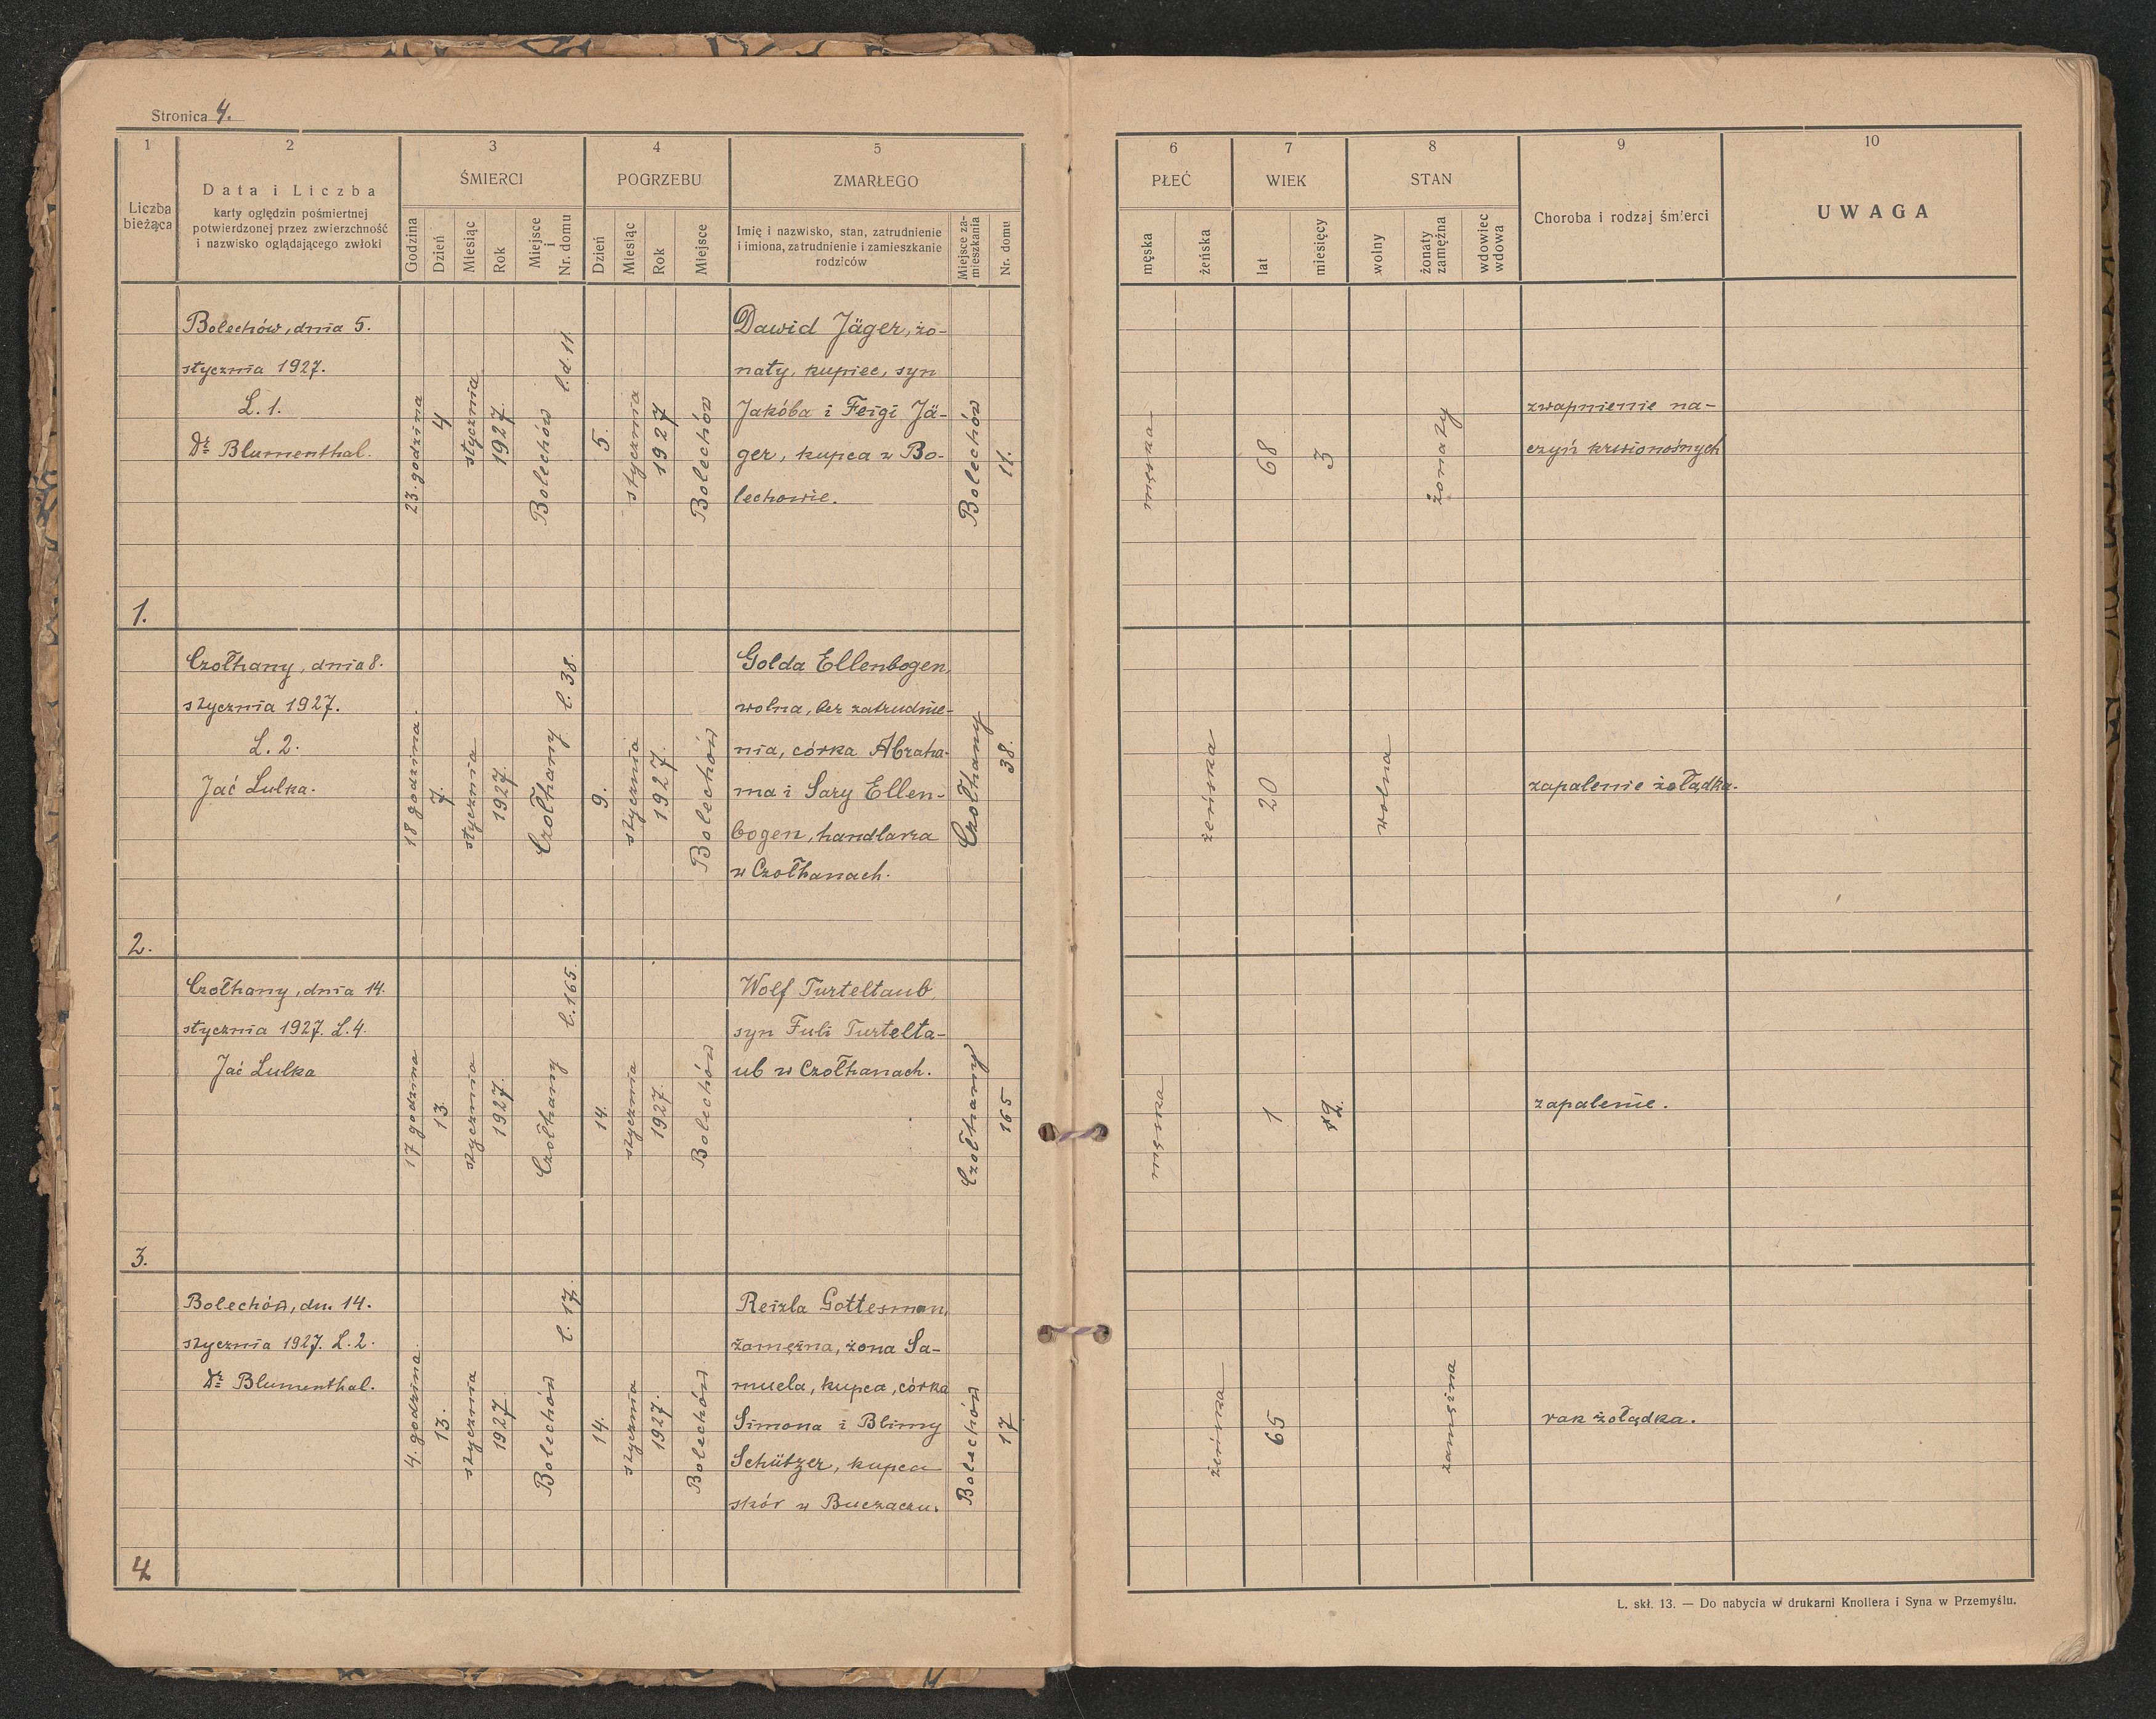 Stronica 4.
1 2 3 4 5
Liczba bieżąca
Data i Liczba
karty oględzin pośmiertnej
potwierdzonej przez zwierzchność
i nazwisko oglądającego zwłoki
ŚMIERCI
Godzina
Dzień
Miesiąc
Rok
Miejsce
i
Nr. domu
POGRZEBU
Dzień
Miesiąc
Rok
Miejsce
ZMARŁEGO
Imię i nazwisko, stan, zatrudnienie
i imiona, zatrudnienie i zamieszkanie
rodziców
Miejsce za-
mieszkania
Nr. domu
6 7 8 9 10
PŁEĆ
męska
żeńska
WIEK
lat
miesięcy
STAN
wolny
żonaty
zamężna
wdowiec
wdowa
Choroba i rodzaj śmierci
UWAGA
1.
Bolechów, dnia 5.
stycznia 1927.
L. 1.
Dr Blumenthal.
23. godzina
4
stycznia
1927.
Bolechów
l.d. 11.
5.
stycznia
1927
Bolechów
Dawid Jäger, żo-
naty, kupiec, syn
Jakóba i Feigi Jä-
ger, kupca w Bo-
lechowie.
Bolechów
11.
męska
68
3
żonaty
zwapnienie na-
czyń krwionośnych
2.
Czołhany, dnia 8.
stycznia 1927.
L. 2.
Jać Lulka.
18 godzina.
7.
stycznia
1927.
Czołhany
l. 38.
9.
stycznia
1927.
Bolechów
Golda Ellenbogen,
wolna, bez zatrudnie-
nia, córka Abraha-
ma i Sary Ellen-
bogen, handlarza
w Czołhanach.
Czołhany
38.
żeńska
20
wolna
zapalenie żołądka.
3.
Czołhany, dnia 14.
stycznia 1927. L. 4.
Jać Lulka
17 godzina
13.
stycznia
1927.
Czołhany
l. 165.
14.
stycznia
1927.
Bolechów
Wolf Turteltaub,
syn Fuli Turtelta-
ub w Czołhanach.
Czołhany
165
męska
1
zapalenie.
4.
Bolechów, dn. 14.
stycznia 1927. L. 2.
Dr Blumenthal.
4. godzina.
13.
stycznia
1927.
Bolechów
l. 17.
14.
stycznia
1927.
Bolechów
Reizla Gottesman,
zamężna, żona Sa-
muela, kupca, córka
Simona i Blimy
Schützer, kupca
skór w Buczaczu.
Bolechów
17
żeńska
65
zamężna
rak żołądka.
L. skł. 13. — Do nabycia w drukarni Knollera i Syna w Przemyślu.